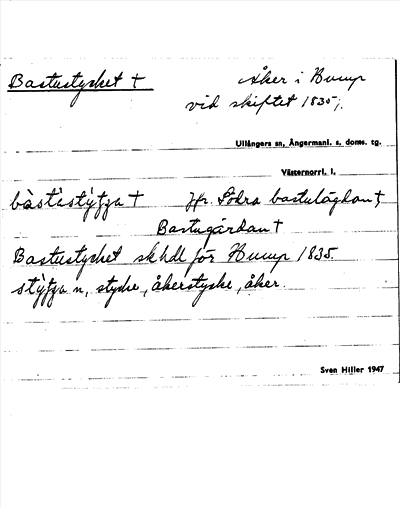 Bastustycket † Åker i Hump
vid skiftet 1835;.
Ullångers sn, Ångermanl. s. doms. tg.
Västernorrl. l.
bàstàstýʃʃa † Jfr. Södra bastulägdan †
Bastugärdan †
Bastustycket skhdl för Hump 1835.
stýʃʃa n, stycke, åkerstycke, åker.
Sven Hiller 1947